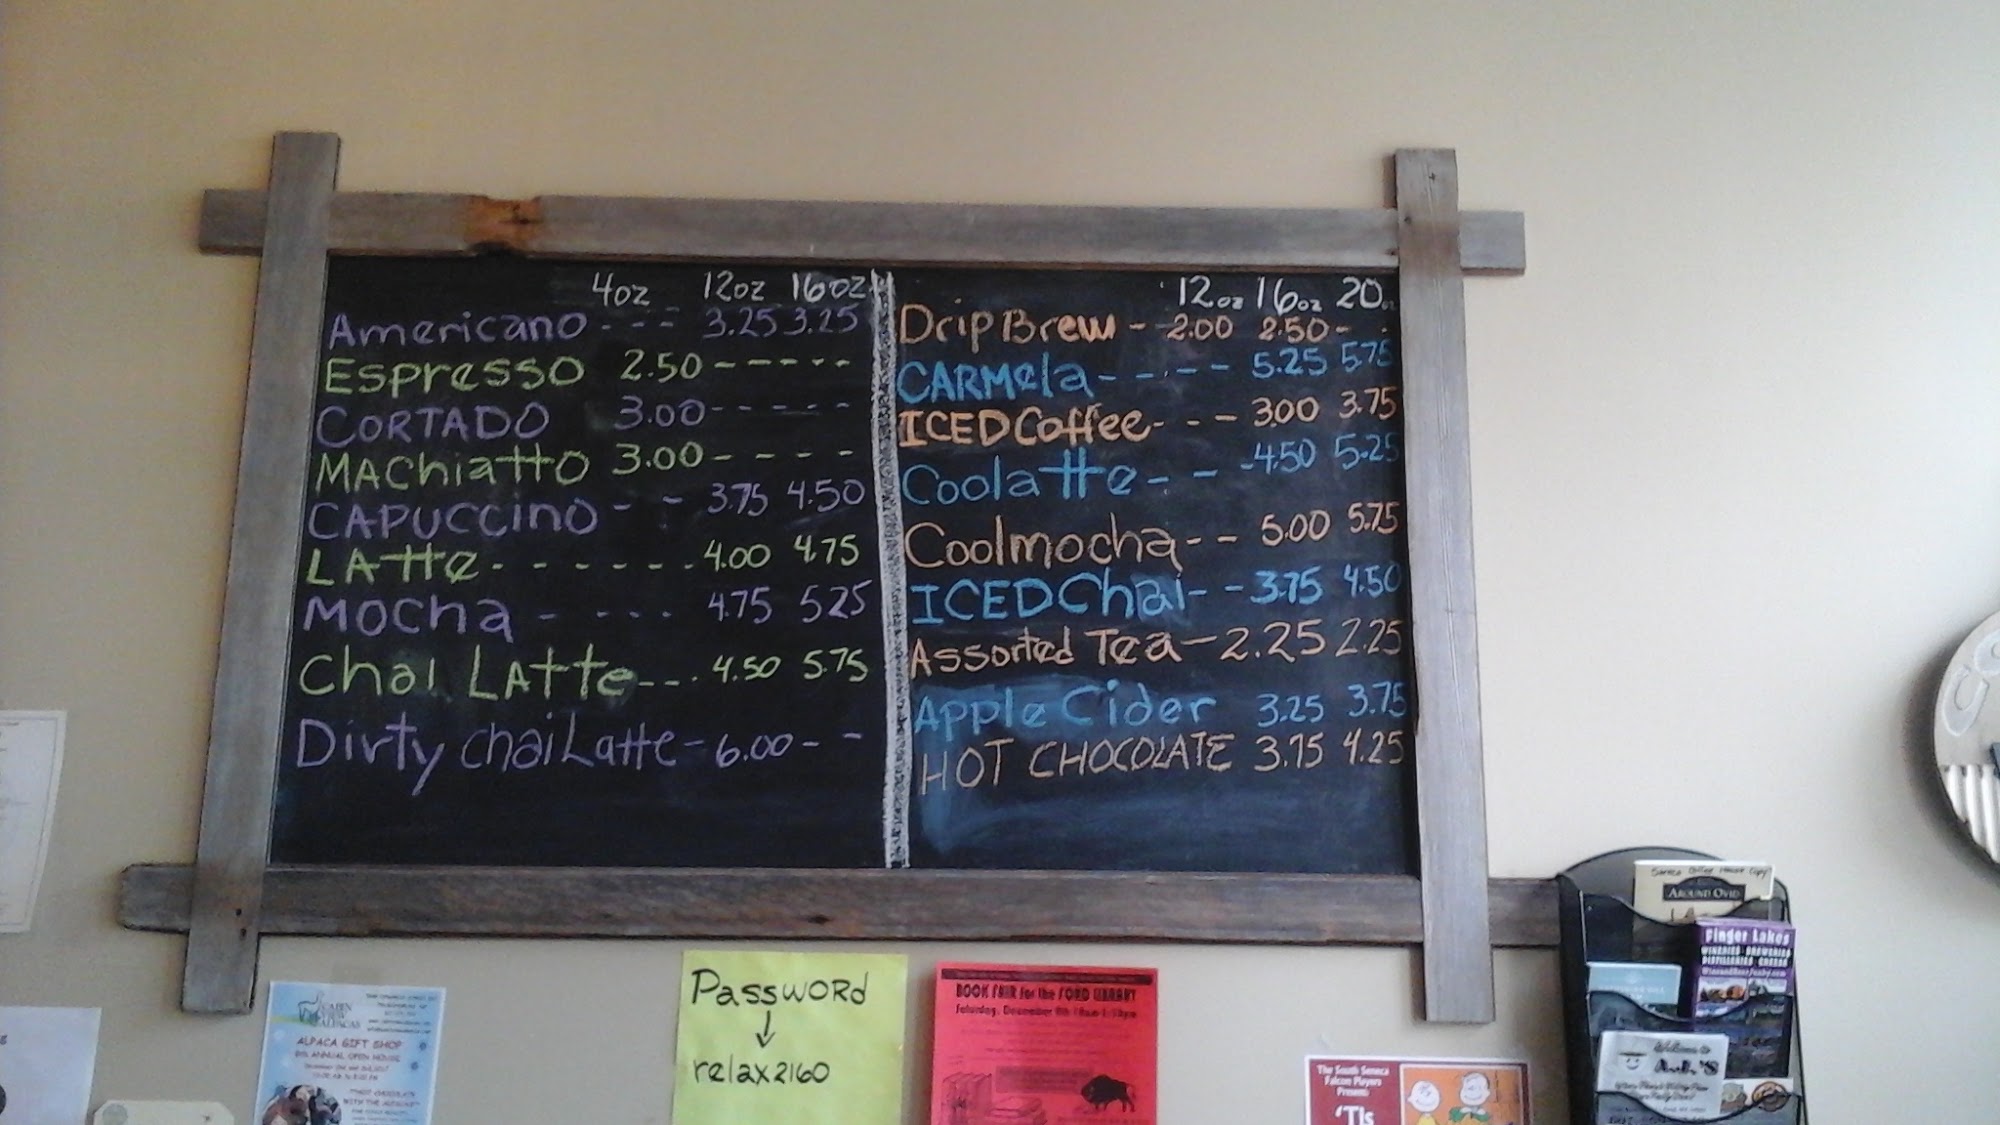 4oz 12oz 16oz
Americano - - - 3.25 3.25
Espresso 2.50 - - - - -
CORTADO 3.00 - - - - -
MAChiatto 3.00 - - - -
CAPUCCino - - 3.75 4.50
LAtte - - - - - - 4.00 4.75
Mocha - - - - 4.75 525
Chai LAtte - - - 4.50 5.75
Dirty chai Latte - 6.00 - -
12oz 16oz 20oz
Drip Brew - 2.00 2.50 - -
CARMela - - - - - 5.25 5.75
ICED Coffee - - - 300 3.75
Coolatte - - - 4.50 5.25
Coolmocha - - 5.00 5.75
ICED Chai - - 3.75 4.50
Assorted Tea - 2.25 2.25
Apple Cider 3.25 3.75
HOT CHOCOLATE 3.75 4.25
Password
↓
relax2160
CABIN
VIEW
ALPACAS
ALPACA GIFT SHOP
ANNUAL OPEN HOUSE
"HOT CHOCOLATE
WITH THE ALPACAS"
BOOK FAIR for the FORD LIBRARY
Saturday, December
The South Seneca
Falcon Players
Present:
'Tis
Seneca Coffee House Copy
AROUND OVID
Finger Lakes
WINERIES BREWERIES
DISTILLERIES CHEESE
Welcome to